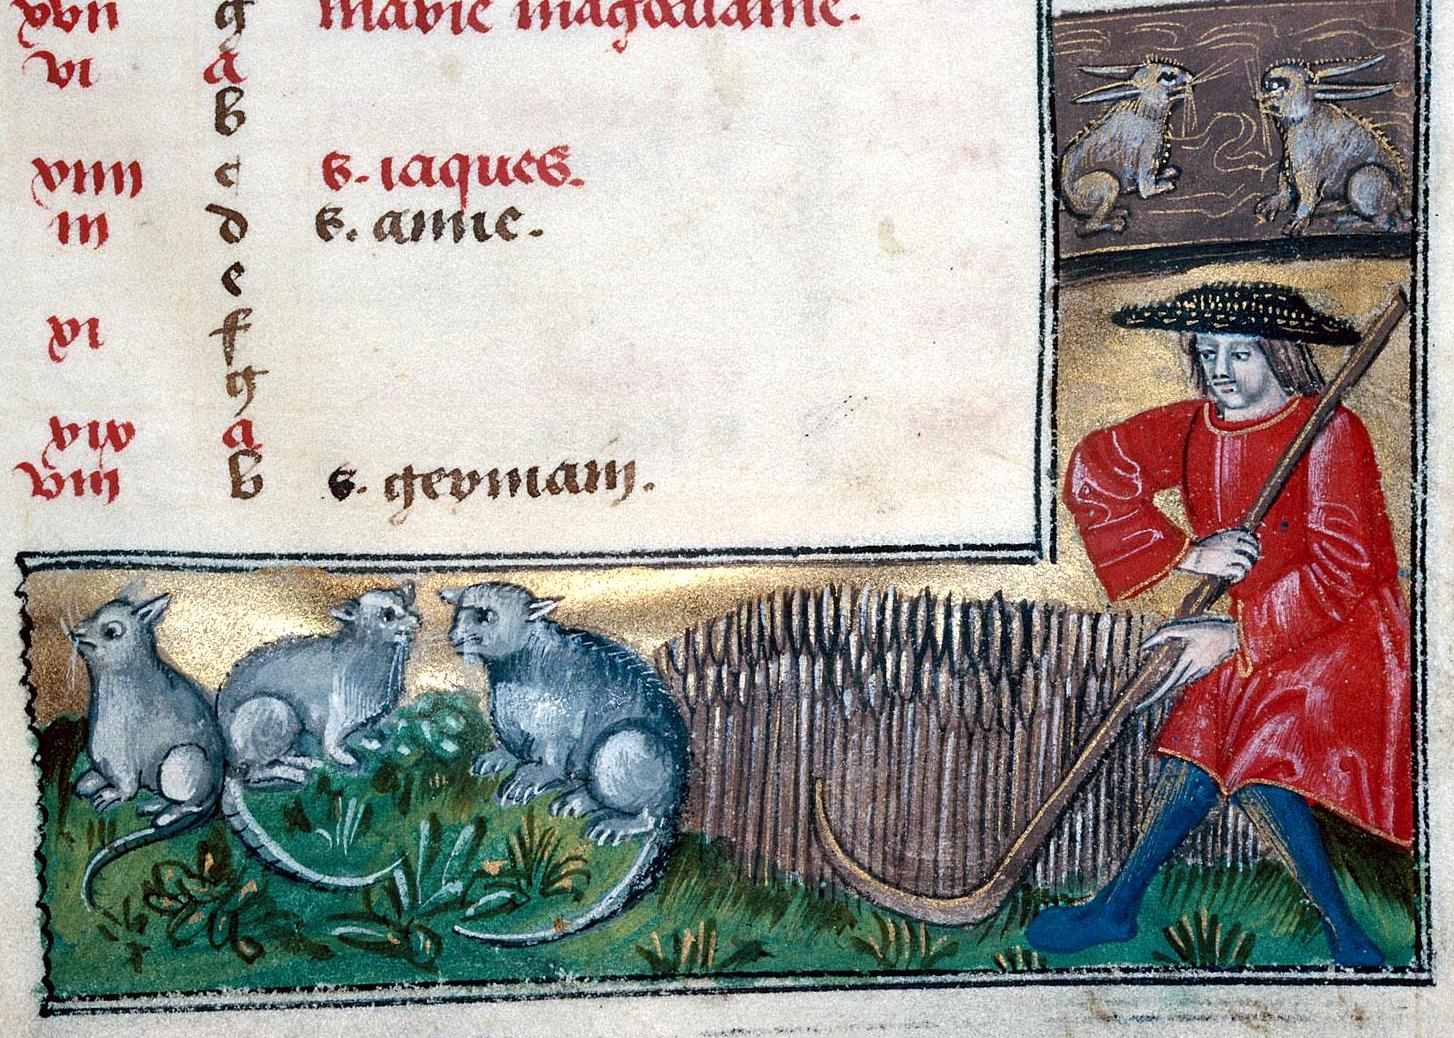 xvii g marie magdalaine.
vi a
b
c s. iaques.
iii d s. anne.
e
xi f
g
xix a
viii b s. germain.